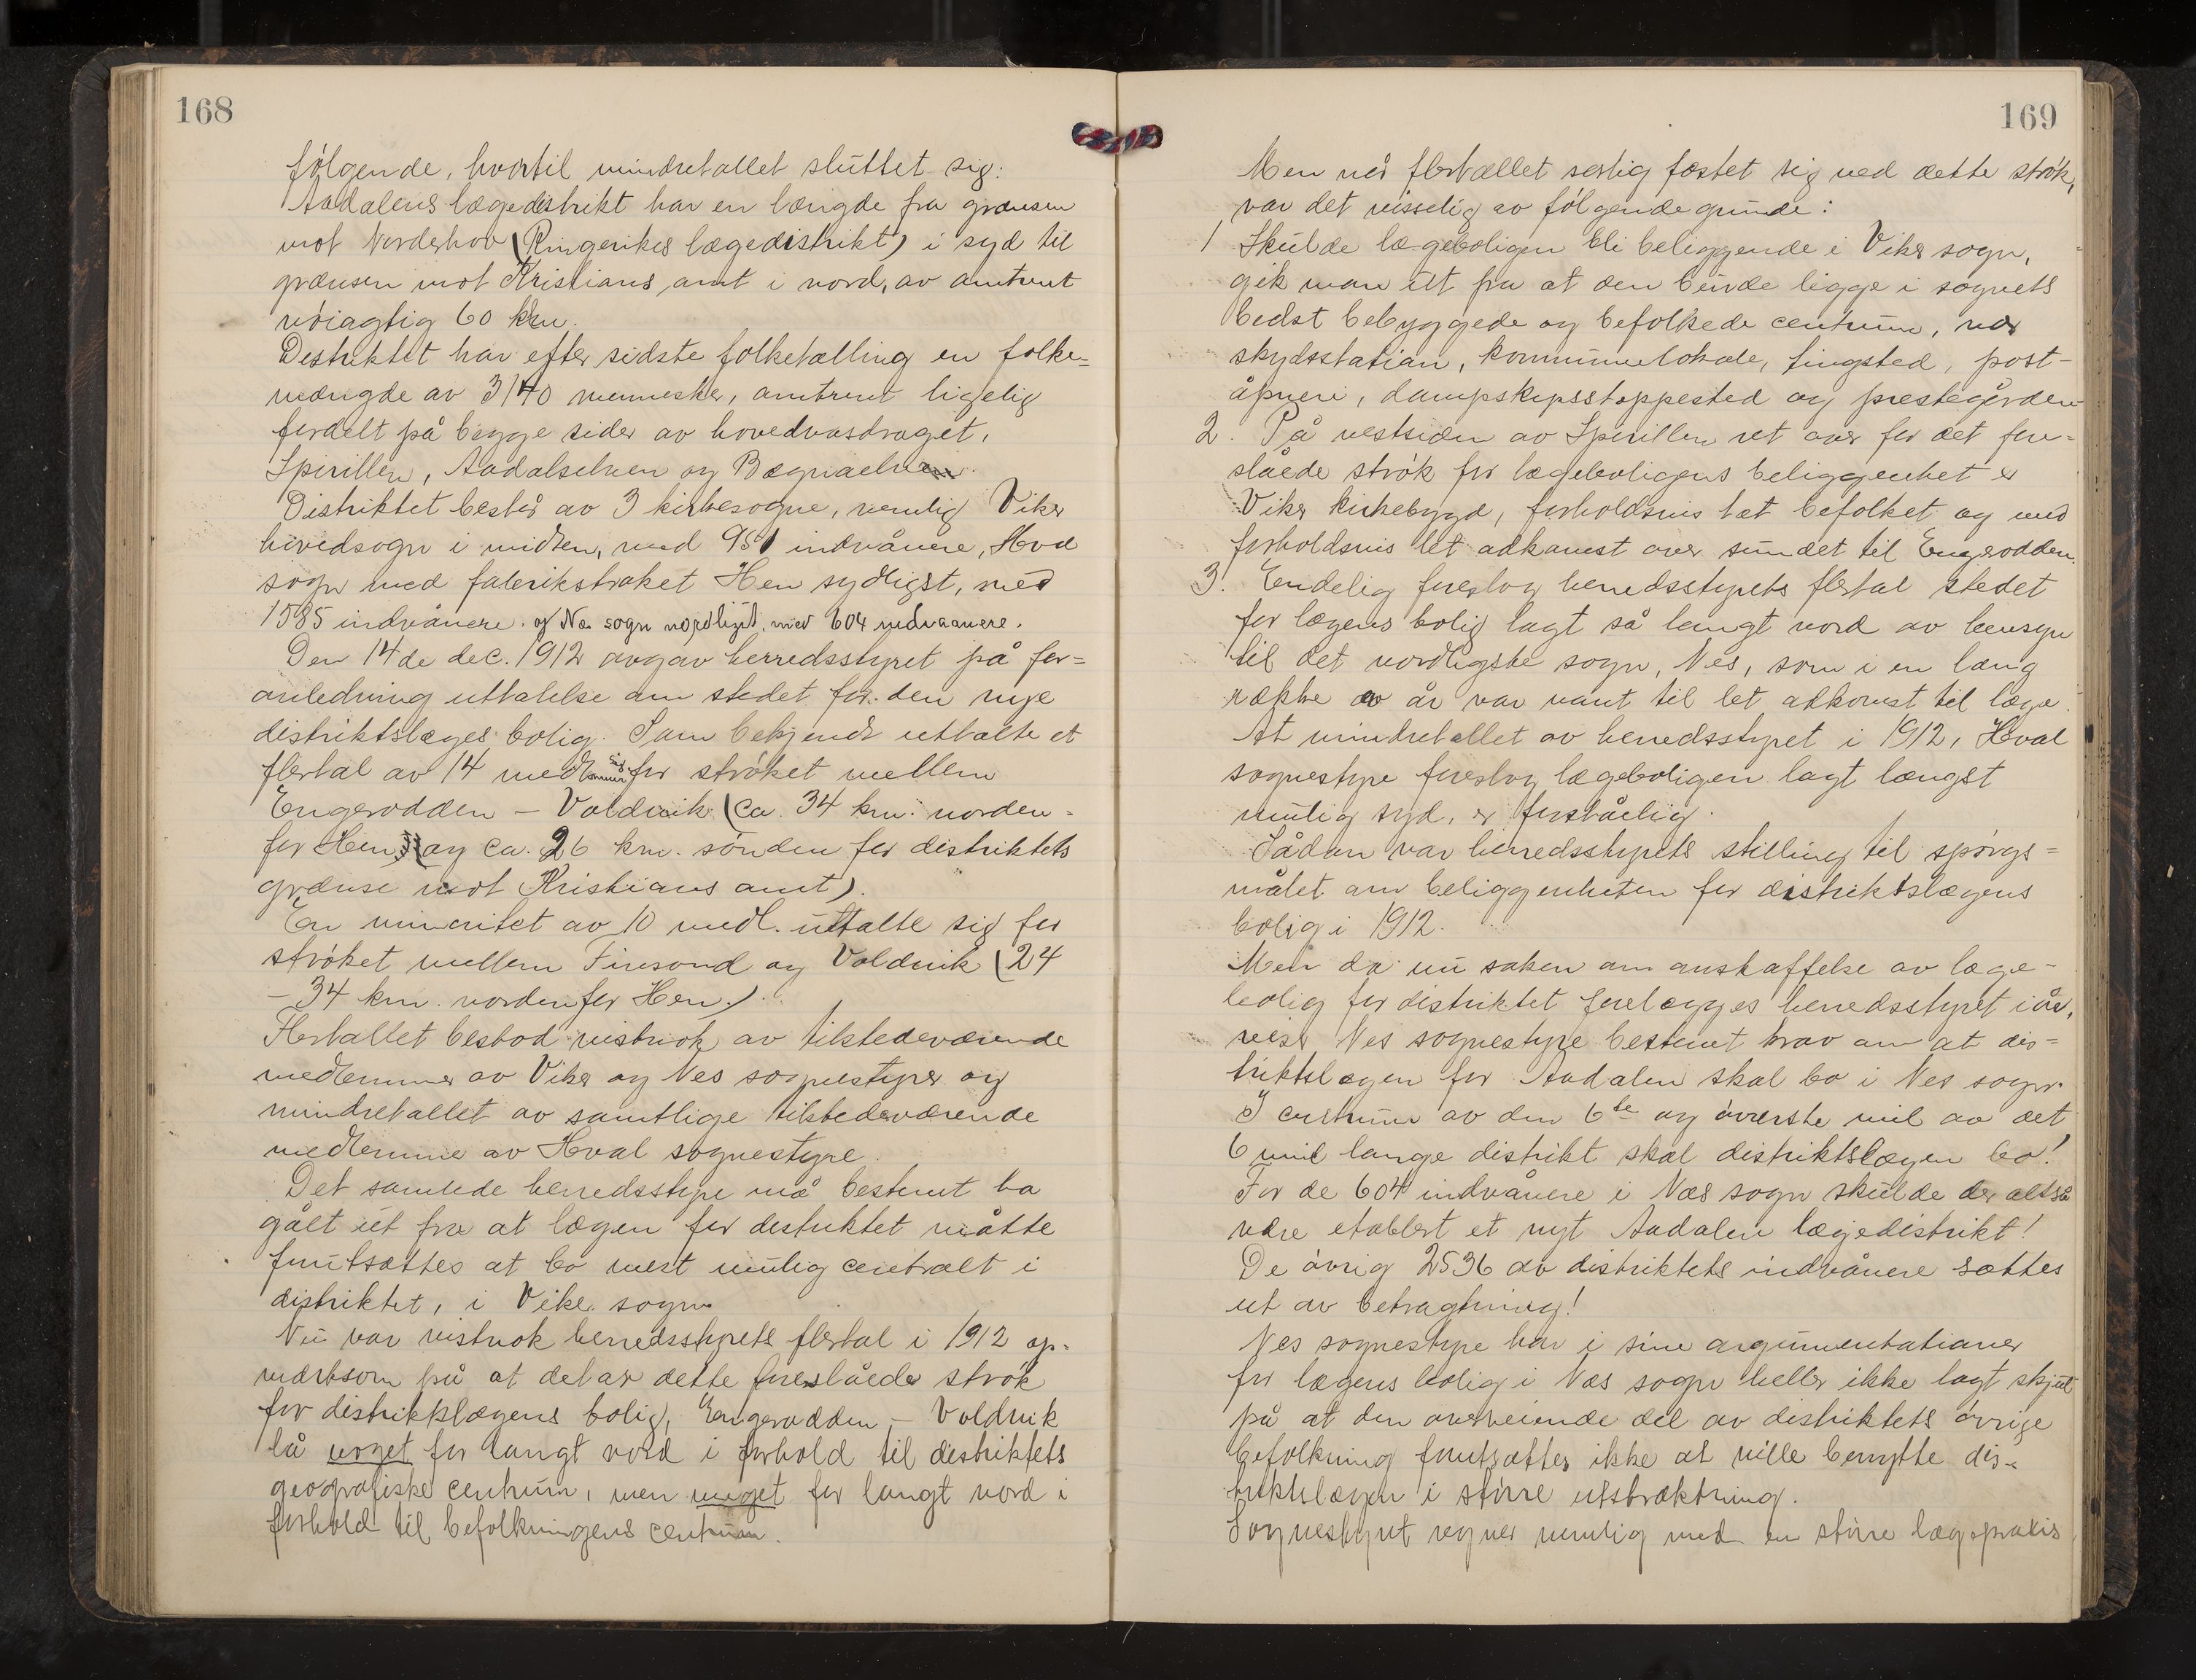 168
følgende, hvortil mindretallet sluttet sig:
Aadalens lægedistrikt har en længde fra grænsen
mot Norderhov (Ringerikes lægedistrikt) i syd til
grænsen mot Kristians amt i nord, av amtrent
nøiagtig 60 km.
Distriktet har efter sidste folketælling en folke=
mængde av 3140 mennesker, amtrent ligelig
fordelt på begge sider av hovedvasdraget,
Spirillen, Aadalselven og Bægnaelven.
Distriktet består av 3 kirkesogne, nemlig Viker
hovedsogn i midten, med 951 indvånere, Hval
sogn med fabrikstrøket Hen sydligst, med
1585 indvånere. og Nes sogn nordligst, med 604 indvaanere.
Den 14de dec. 1912 avgav herredsstyret på for=
anledning uttalelse om stedet for den nye
distriktslæges bolig. Som bekjendt uttalte et
flertal av 14 medlemmer sig for strøket mellem
Engerodden – Voldvik (ca. 34 km. norden=
for Hen og ca. 26 km. sønden for distriktets
grænse mot Kristians amt).
En minoritet av 10 medl. uttalte sig for
strøket mellem Finsand og Voldvik (24
– 34 km. nordenfor Hen.).
Flertallet bestod vistnok av tilstedeværende
medlemmer av Viker og Nes sognestyrer og
mindretallet av samtlige tilstedeværende
medlemmer av Hval sognestyre.
Det samlede herredsstyre må bestemt ha
gått ut fra at lægen for distriktet måtte
forutsættes at bo mest mulig centralt i
distriktet, i Viker sogn.
Nu var vistnok herredsstyrets flertal i 1912 op=
mærksom på at det av dette foreslåede strøk
for distriktslægens bolig, Engerodden – Voldvik
lå noget for langt nord i forhold til distriktets
geografiske centrum, men meget for langt nord i
forhold til befolkningens centrum.
169
Men når flertallet særlig fæstet sig ved dette strøk,
var det visselig av følgende grunde:
1 Skulde lægeboligen bli beliggende i Viker sogn,
gik man ut fra at den burde ligge i sognets
bedst bebyggede og befolkede centrum, nær
skydsstation, kommunelokale, tingsted, post-
åpneri, dampskipsstoppested og prestegården
2. På vestsiden av Spirillen ret over for det fore=
slåede strøk for lægeboligens beliggenhet er
Viker kirkebygd, forholdsvis tæt befolket og med
forholdsvis let adkomst over sundet til Engerodden.
3. Endelig foreslog herredsstyrets flertal stedet
for lægens bolig lagt så langt nord av hensyn
til det nordligste sogn, Nes, som i en lang
række av år var vant til let adkomst til læge.
At mindretallet av herredsstyret i 1912, Hval
sognestyre foreslog lægeboligen lagt længst
mulig syd, er forståelig.
Sådan var herredsstyrets stilling til spørgs=
målet om beliggenheten for distriktslægens
bolig i 1912.
Men da nu saken om anskaffelse av læge-
bolig for distriktet forelægges herredsstyret i år,
reiser Nes sognestyre bestemt krav om at dis=
triktslægen for Aadalen skal bo i Nes sogn.
I centrum av den 6te og øverste mil av det
6 mil lange distrikt skal distriktslægen bo!
For de 604 indvånere i Nes sogn skulde der altså
være etablert et nyt Aadalen lægedistrikt!
De øvrig 2536 av distriktets indvånere sættes
ut av betragtning!
Nes sognestyre har i sine argumentationer
for lægens bolig i Næs sogn heller ikke lagt skjul
på at den overveiende del av distriktets øvrige
befolkning forutsættes ikke at ville benytte dis=
triktslægen i større utstrækning.
Sognestyret regner nemlig med en større lægepraxis